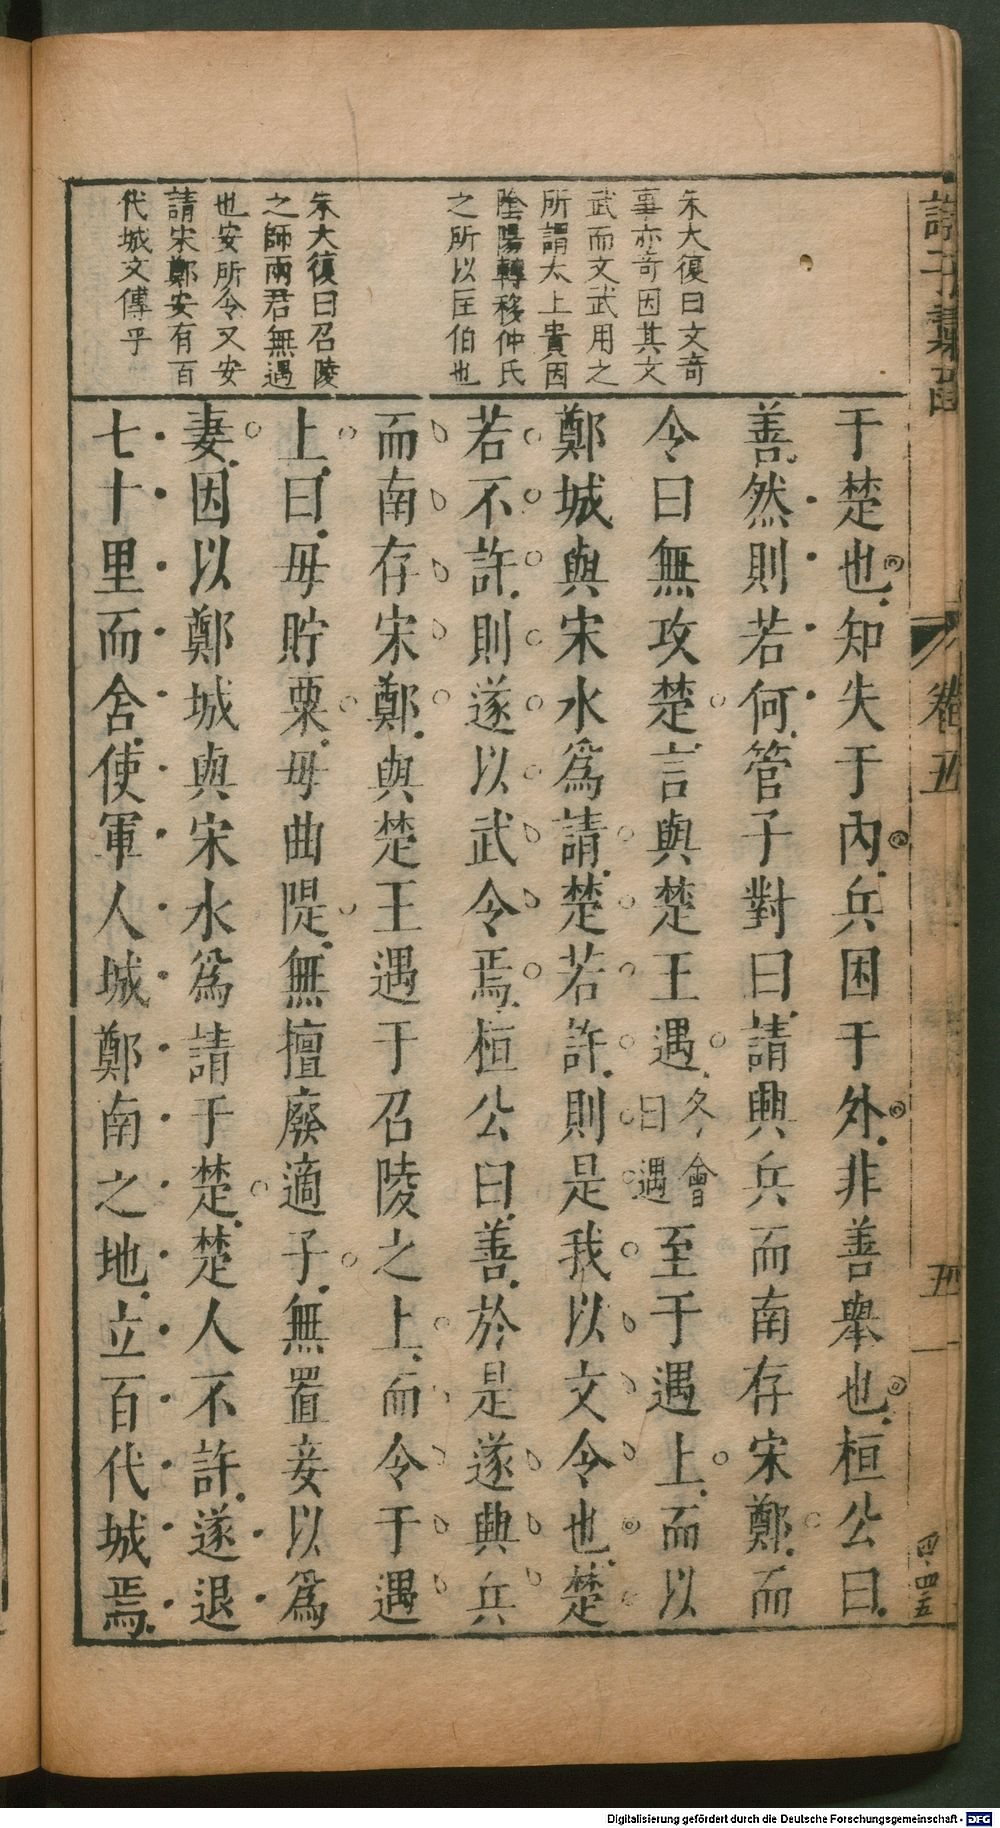 朱大復曰文奇
事亦奇因其文
武而文武用之
所謂太上貴因
陰陽轉移仲氏
之所以匡伯也
朱大復曰召陵
之師兩君無遇
也安所令又安
請宋鄭安有百
代城文傳乎
于楚也知失于內兵困于外非善舉也桓公曰
善然則若何管子對曰請興兵而南存宋鄭而
令曰無攻楚言與楚王遇冬會曰遇至于遇上而以
鄭城與宋水爲請楚若許則是我以文令也楚
若不許則遂以武令焉桓公曰善於是遂興兵
而南存宋鄭與楚王遇于召陵之上而令于遇
上曰毋貯粟毋曲隄無擅廢適子無置妾以爲
妻因以鄭城與宋水爲請于楚楚人不許遂退
七十里而舍使軍人城鄭南之地立百代城焉
卷五
五一
四・四五
Digitalisierung gefördert durch die Deutsche Forschungsgemeinschaft - DFG